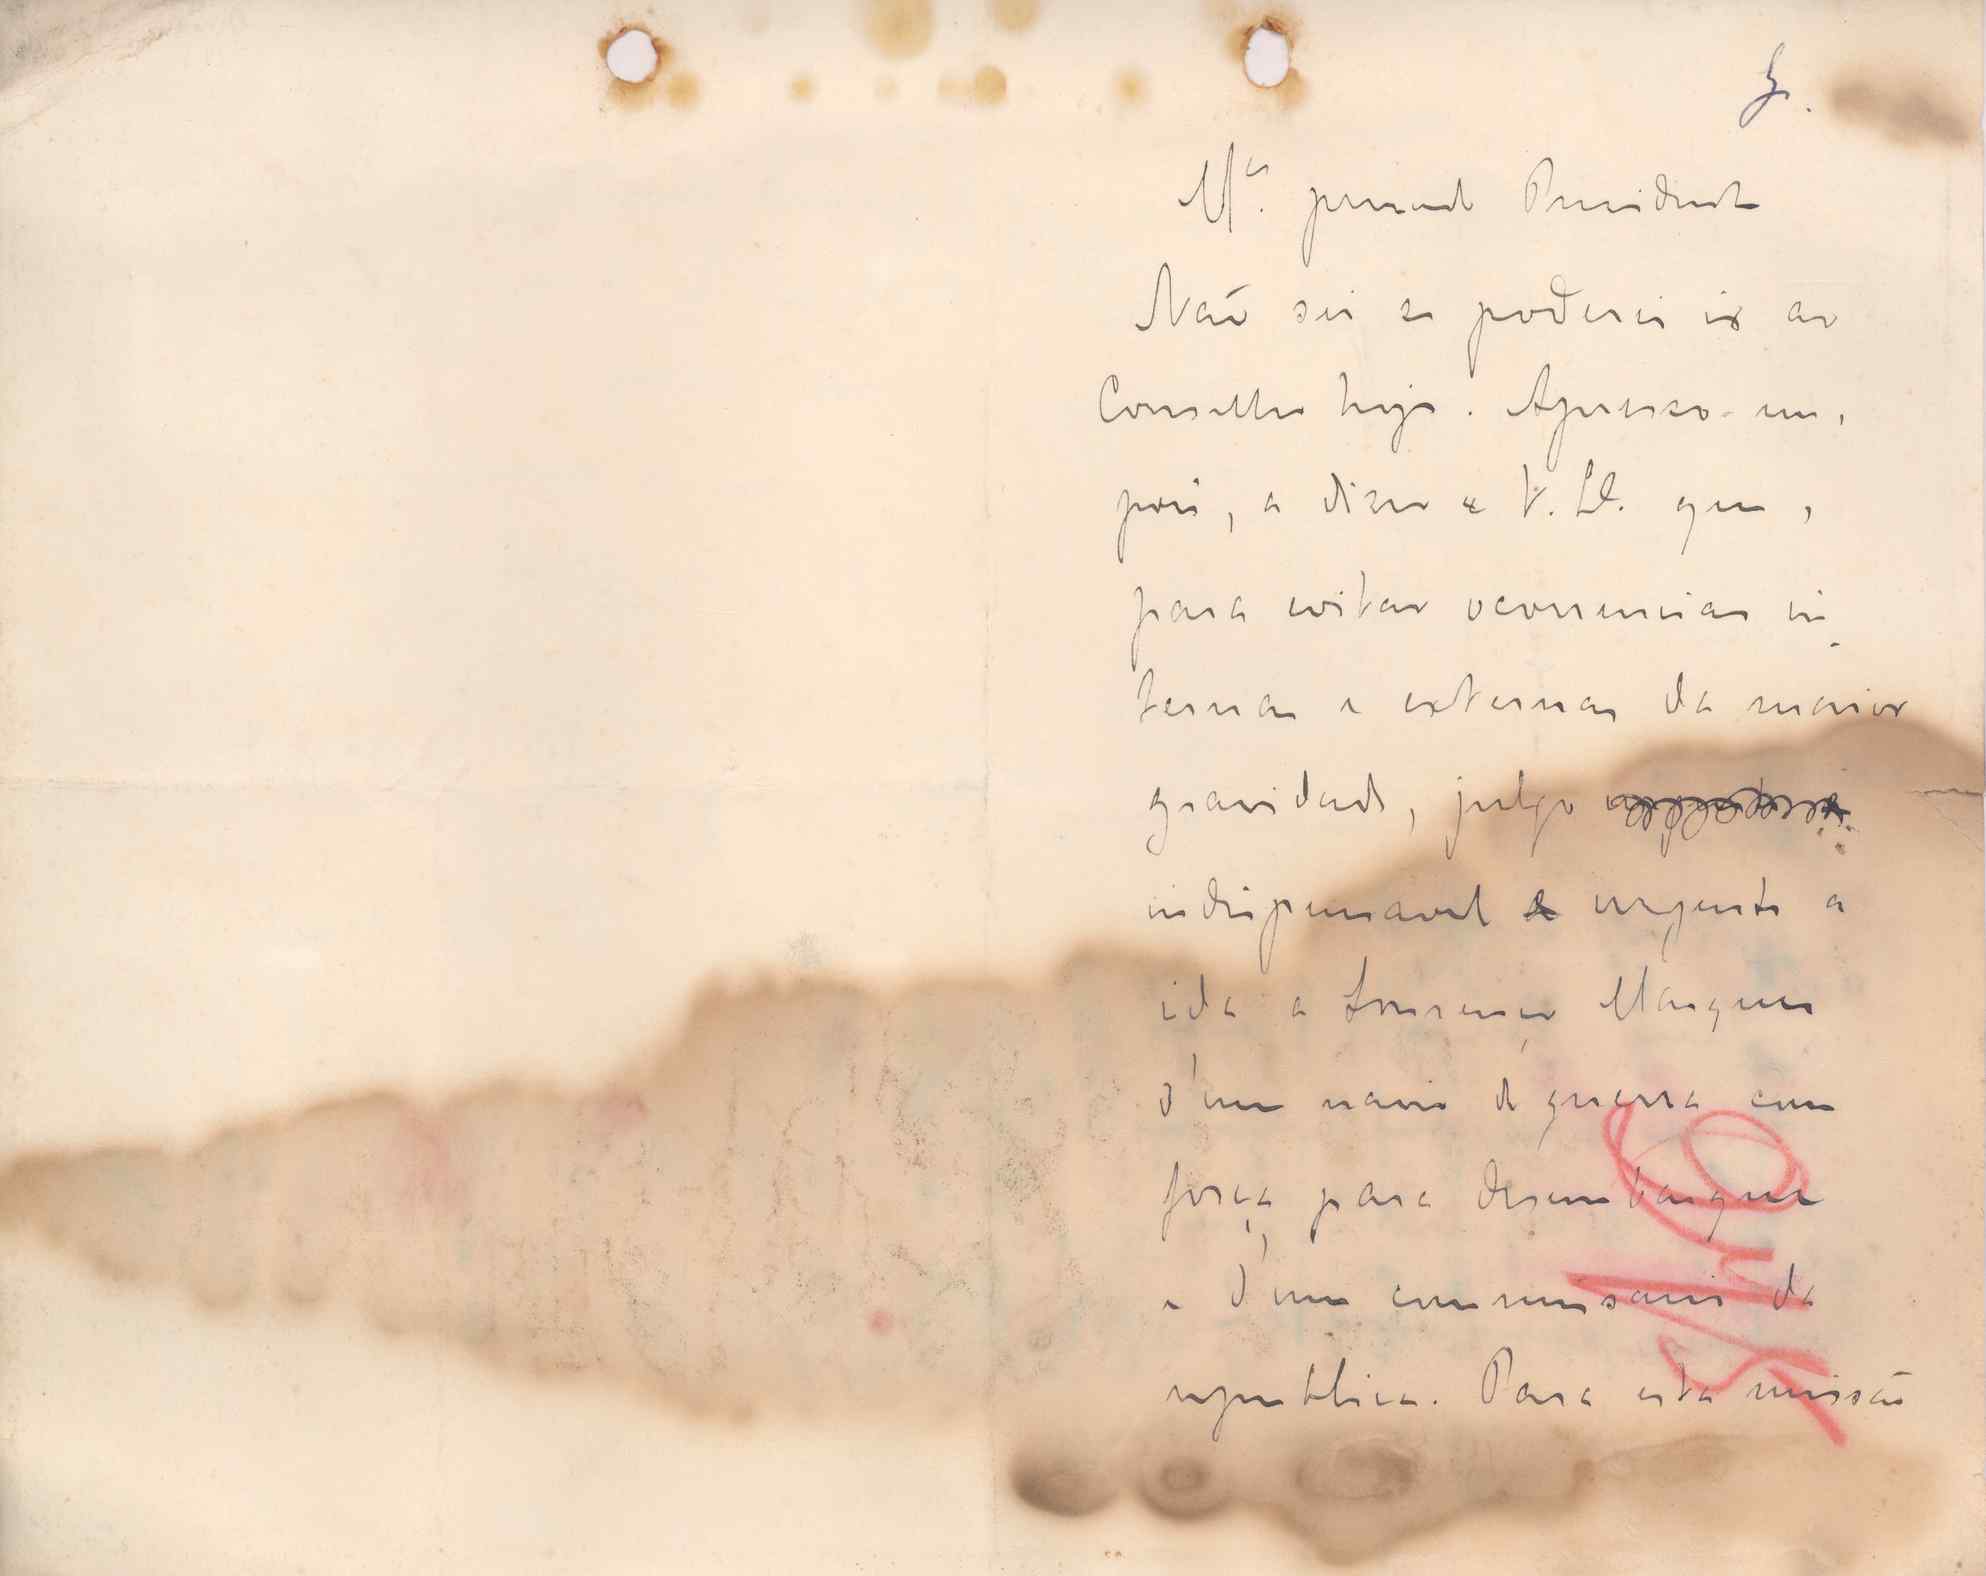 Mᵉᵘ. presado Presidente
Não sei se poderei ir ao
Conselho hoje. Apresso-me,
pois, a dizer a V. Ex. que,
para evitar occurrencias in-
ternas e externas da maior
gravidade, julgo
indispensavel e urgente a
ida a Lourenço Marques
d'um navio de guerra com
força para desembarque
e d'um commissario da
republica. Para esta missão